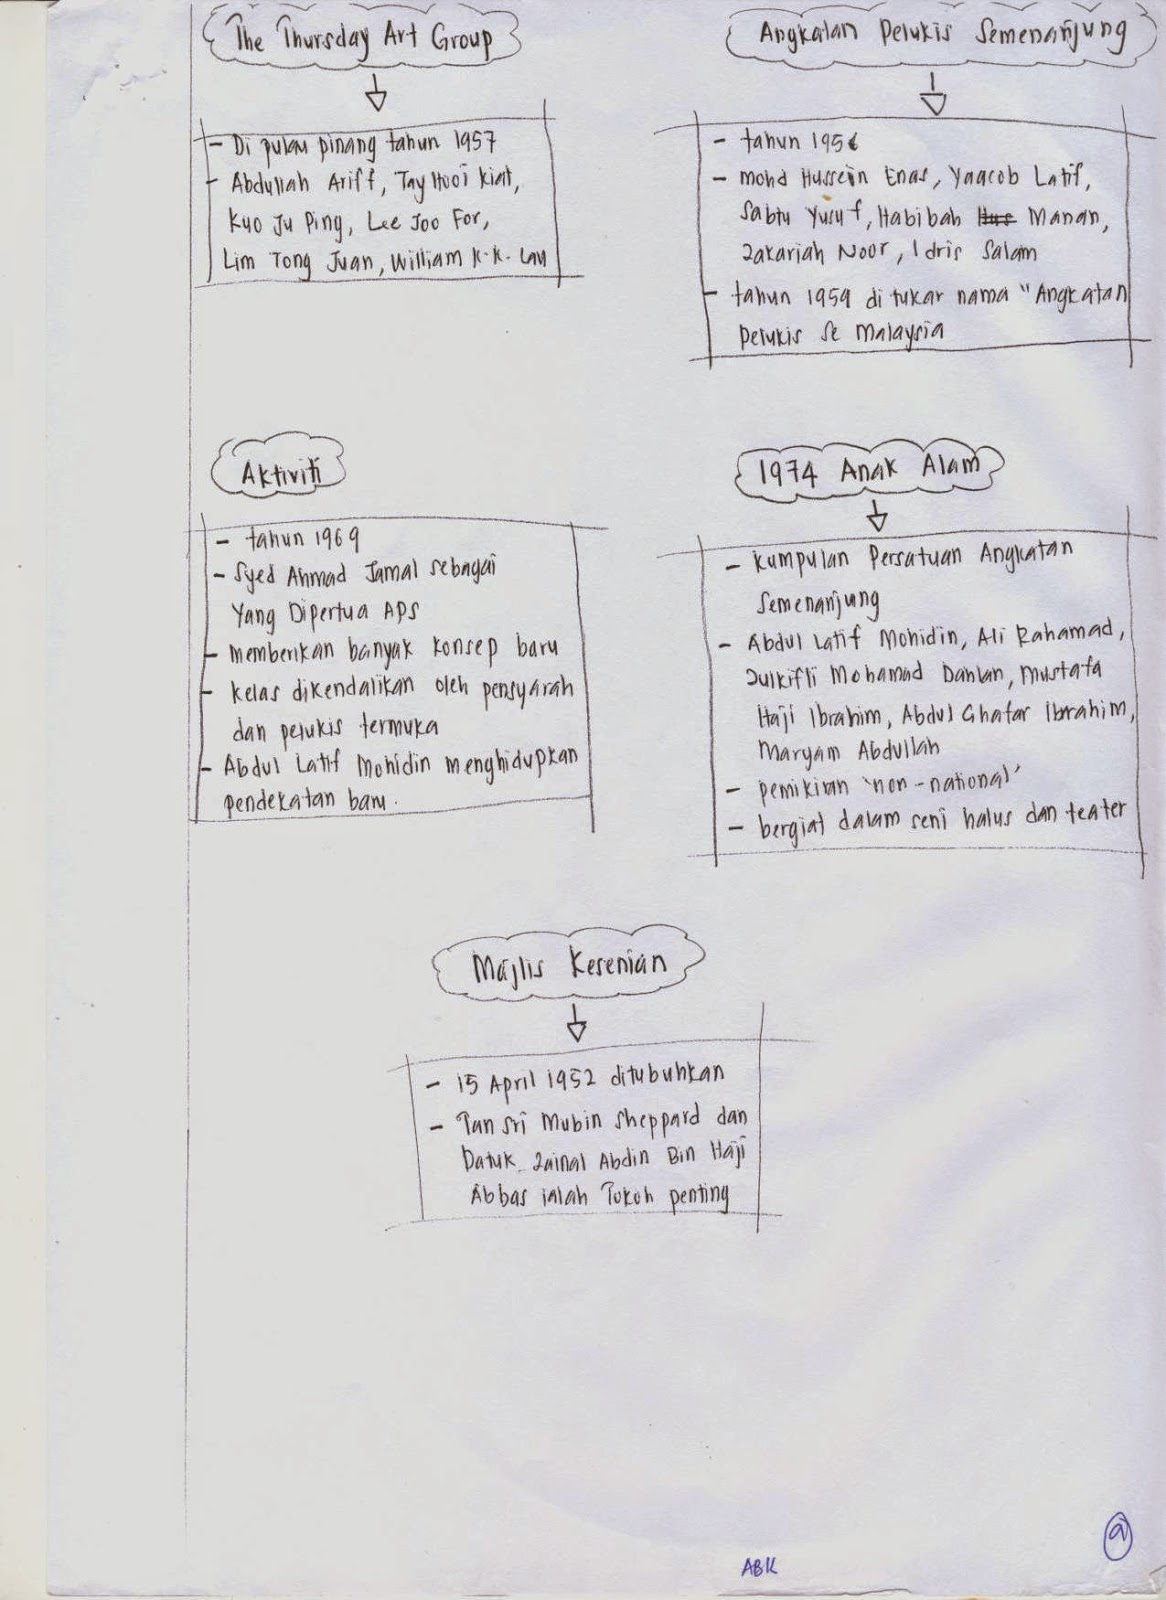 The Thursday Art Group
- Di pulau pinang tahun 1957
- Abdullah Ariff, Tay Hooi Kiat,
Kuo Ju Ping, Lee Joo For,
Lim Tong Juan, William K.K. Lau
Angkalan Pelukis Semenanjung
- tahun 1956
- mohd Hussein Enas, Yaacob Latif,
Sabtu Yusuf, Habibah Manan,
Zakariah Noor, Idris Salam
- tahun 1959 di tukar nama "Angkatan
Pelukis Se Malaysia
Aktiviti
- tahun 1969
- Syed Ahmad Jamal sebagai
Yang Dipertua APS
- memberikan banyak konsep baru
- kelas dikendalikan oleh pensyarah
dan pelukis termuka
- Abdul Latif Mohidin menghidupkan
pendekatan baru.
1974 Anak Alam
- kumpulan Persatuan Angkatan
Semenanjung
- Abdul Latif Mohidin, Ali Rahamad,
Zulkifli Mohamad Dahlan, Mustafa
Haji Ibrahim, Abdul Ghafar Ibrahim,
Maryam Abdullah
- pemikiran 'non-national'
- bergiat dalam seni halus dan teater
Majlis Kesenian
- 15 April 1952 ditubuhkan
- Tan Sri Mubin Sheppard dan
Datuk Zainal Abdin Bin Haji
Abbas ialah Tokoh penting
ABK